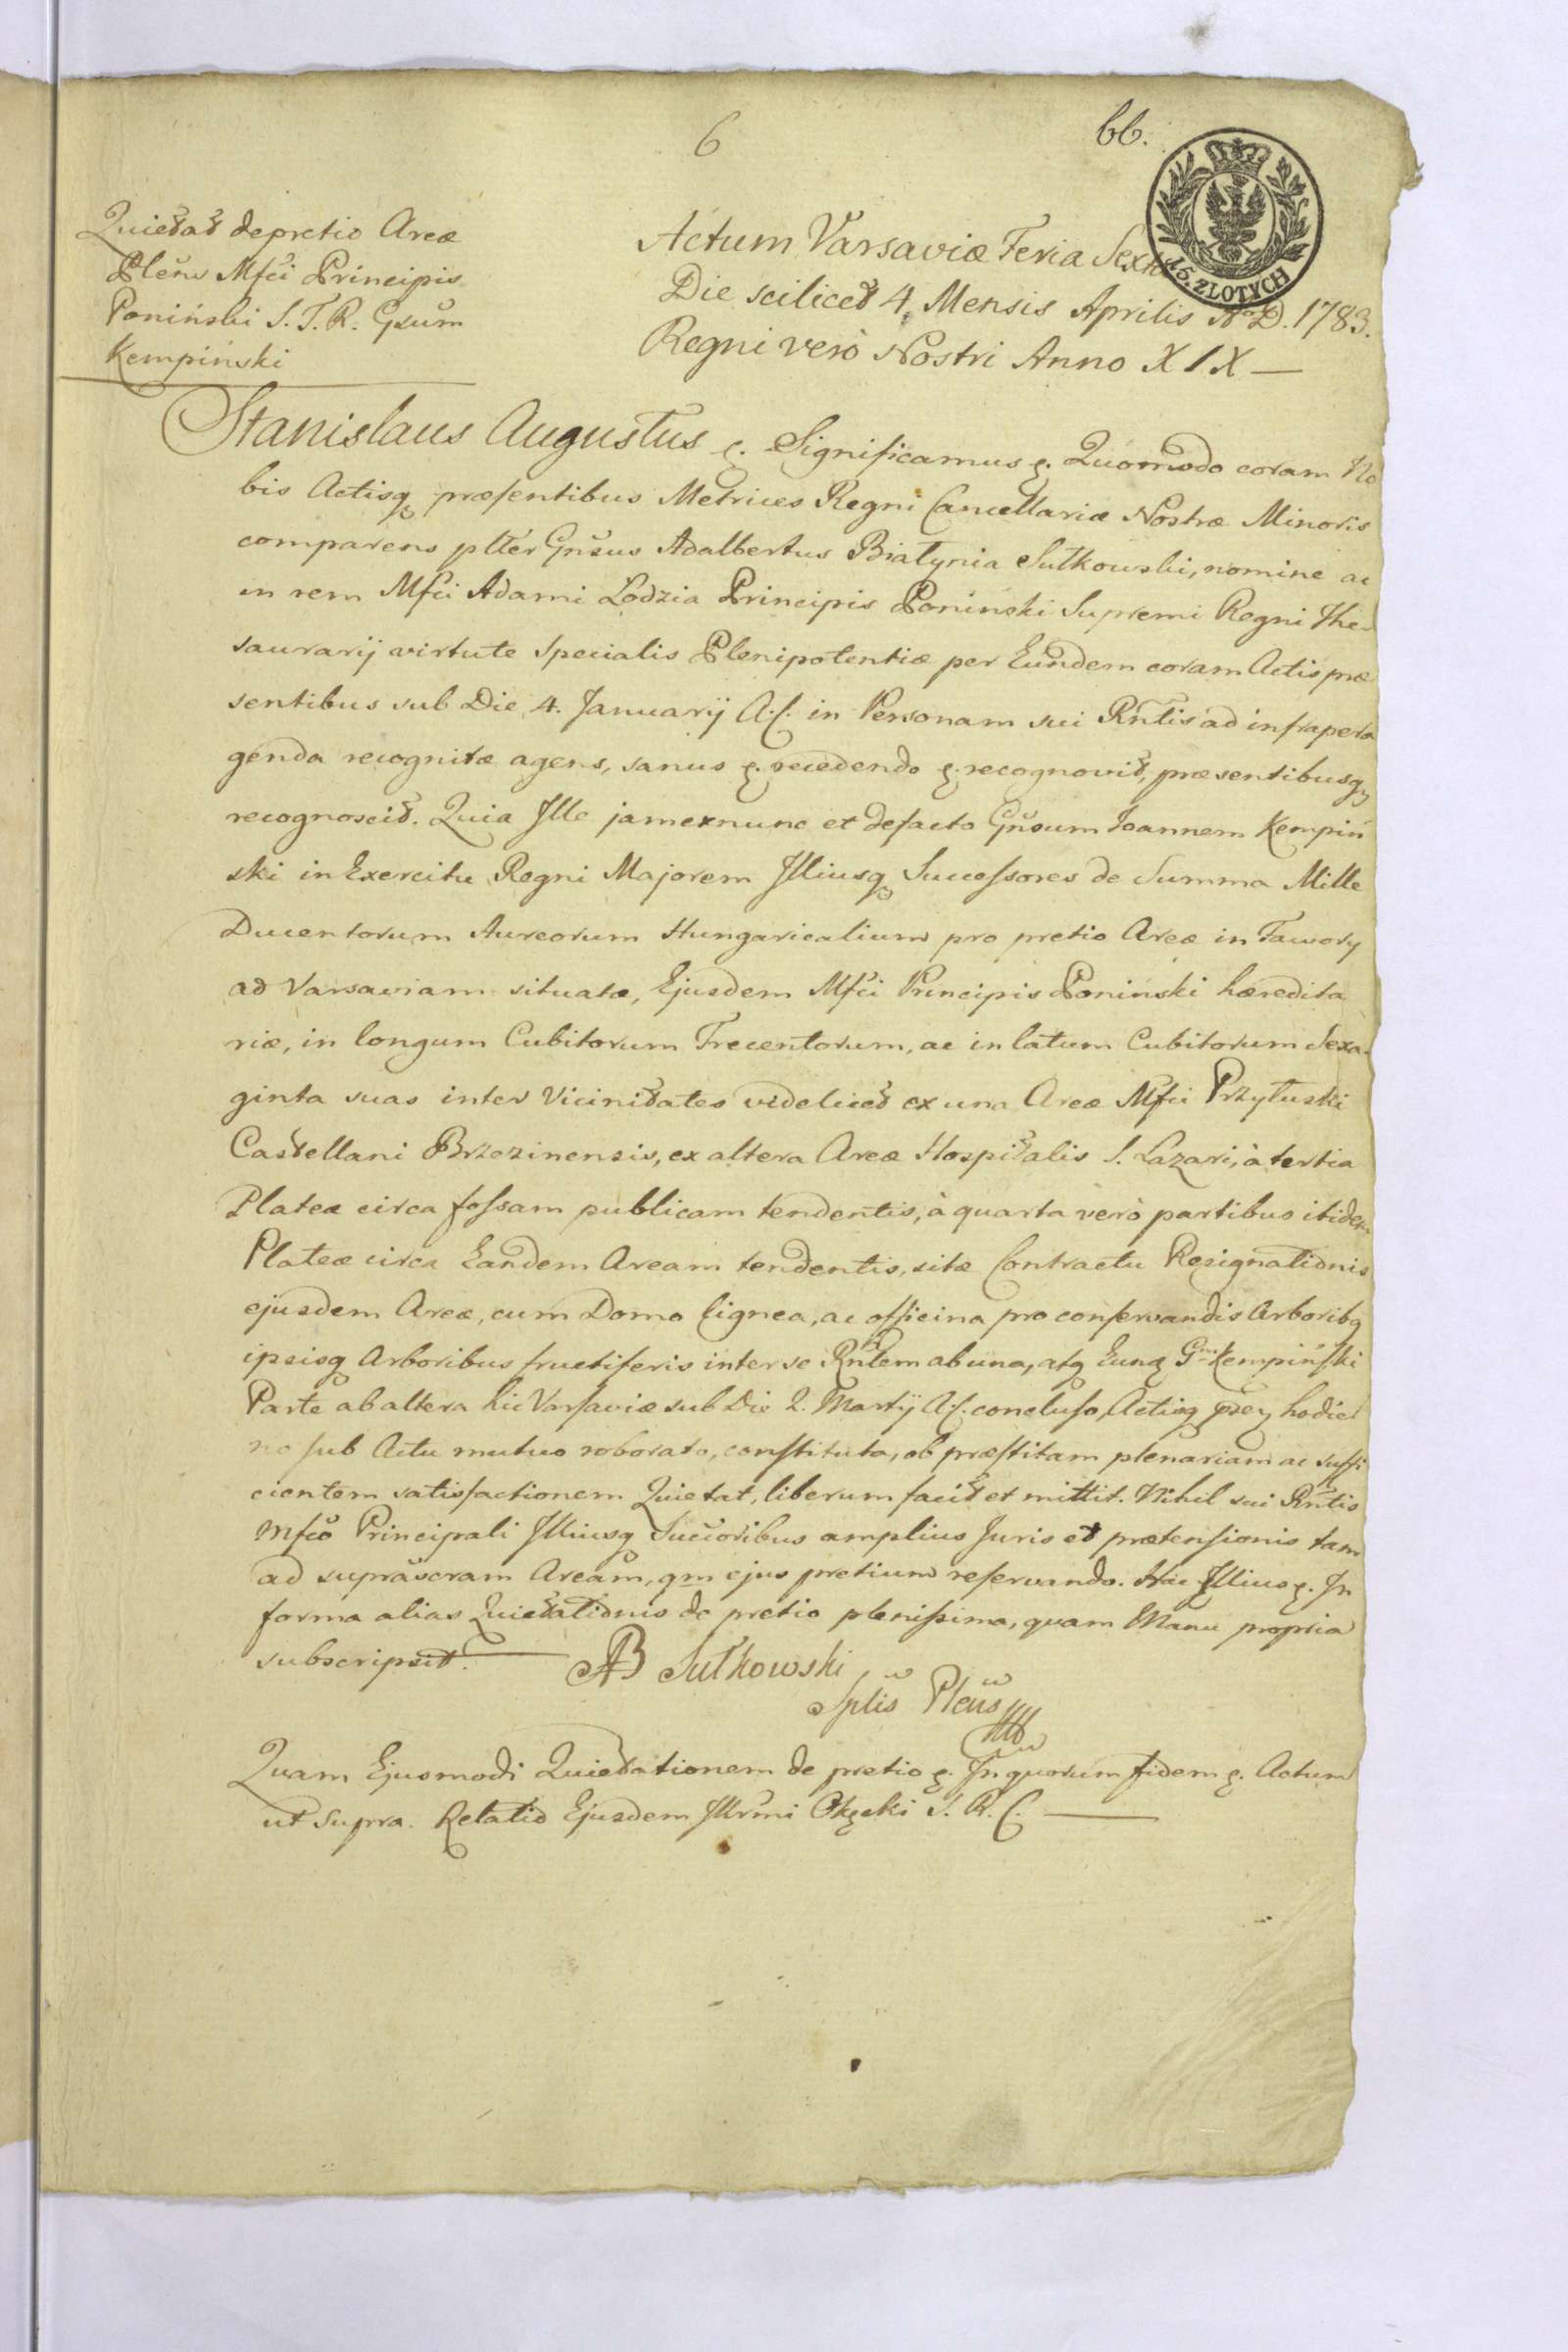 6
66.
15. ZLOTYCH
Quietat de pretio Areæ
Pleñs Mfci Principis
Poniński S. T. R. Gsum
Kempiński
Actum Varsaviæ Feria Sexta
Die scilicet 4. Mensis Aprilis Aº D. 1783.
Regni verò Nostri Anno XIX —
Stanislaus Augustus ę. Significamus ę. Quomodo coram No
bis Actisq præsentibus Metrices Regni Cancellariæ Nostræ Minoris
comparens pltèr Gñsus Adalbertus Białynia Sułkowski, nomine ac
in rem Mfci Adami Lodzia Principis Poniński Supremi Regni The-
saurarij virtute Specialis Plenipotentiæ per Eundem coram Actis præ
sentibus sub Die 4. Januarij A. f. in Personam sui Rñtis ad infra pera
genda recognitæ agens, sanus ę. recedendo ę. recognovit, præsentibusq
recognoscit. Quia Ille jam exnunc et defacto Gñsum Joannem Kempiń
ski in Exercitu Regni Majorem Illiusq Successores de Summa Mille
Ducentorum Aureorum Hungaricalium pro pretio Areæ in
ad Varsaviam situatæ, Ejusdem Mfci Principis Poninski hæredita
riæ, in longum Cubitorum Trecentorum, ac in latum Cubitorum Sexa-
ginta suas inter Vicinitates videlicet ex una Areæ Mfci Przyłuski
Castellani Brzezinensis, ex altera Areæ Hospitalis S. Lazari, à tertia
Plateæ circa fossam publicam tendentis, à quarta verò partibus itidem
Plateæ circa Eandem Aream tendentis, sitæ Contractu Resignationis
ejusdem Areæ, cum Domo lignea, ac officina pro conservandis Arboribq
ipsisq Arboribus fructiferis inter se Rñtem ab una, atq Eunq Gm Kempiński
Parte ab altera hic Varsaviæ sub Die 2. Martij A. f. concluso, Actisq hodier
no sub Actu mutuo roborato, constituta, ob præstitam plenariam ac suffi
cientem satisfactionem Quietat, liberum facit et mittit. Nihil sui Rñtis
Mfco Principali Illiusq Succoribus amplius Juris et prætensionis tam
ad suprascram Aream, qm ejus pretium reservando. Hac Illius ę. In
forma alias Quietationis de pretio plenissima, quam Manu propria
subscripsit. — AB Sułkowski
Splis Pleñs
Quam Ejusmodi Quietationem de pretio ę. In quorum fidem ę. Actum
ut supra. Relatio Ejusdem Illrmi Okęcki S. R. C. —